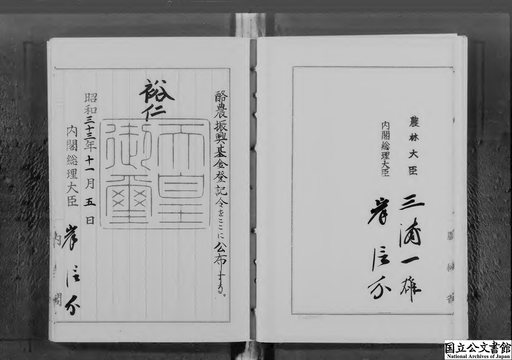 酪農振興基金登記令をここに公布する。
裕仁
天皇御璽
昭和三十三年十一月五日
内閣総理大臣 岸信介
農林大臣 三浦一雄
内閣総理大臣 岸信介
国立公文書館
National Archives of Japan